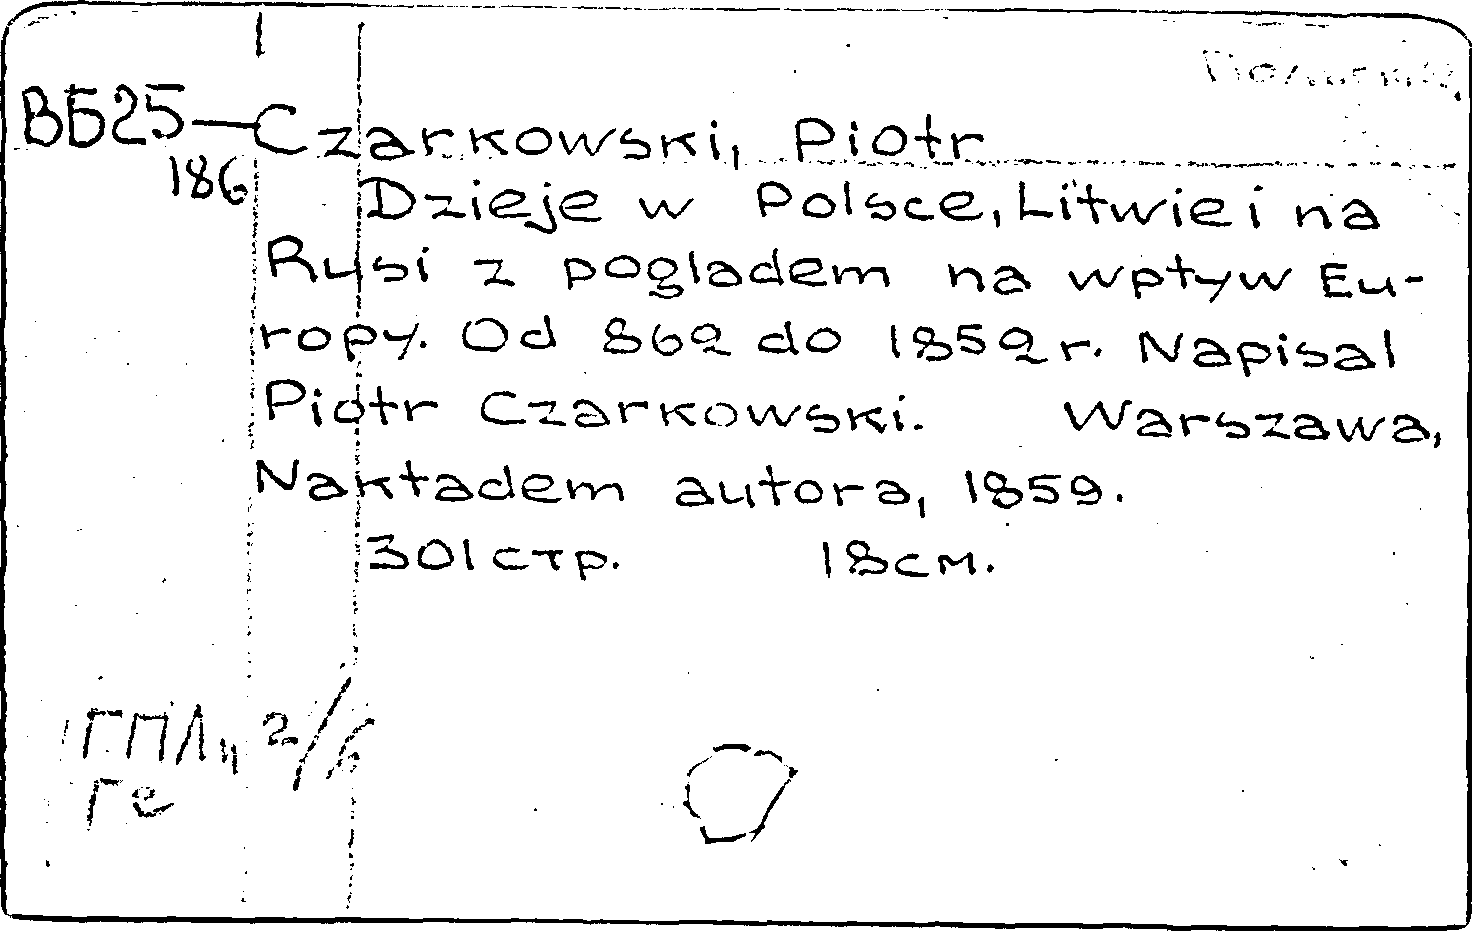 ВБ25—Czarkowski, Piotr
186
Dzieje w Polsce, Litwie i na
Rusi z pogladem na wpływ Eu-
ropy. Od 862 do 1852 r. Napisal
Piotr Czarkowski. Warszawa,
Nakładem autora, 1859.
301 стр. 18 см.
2/6